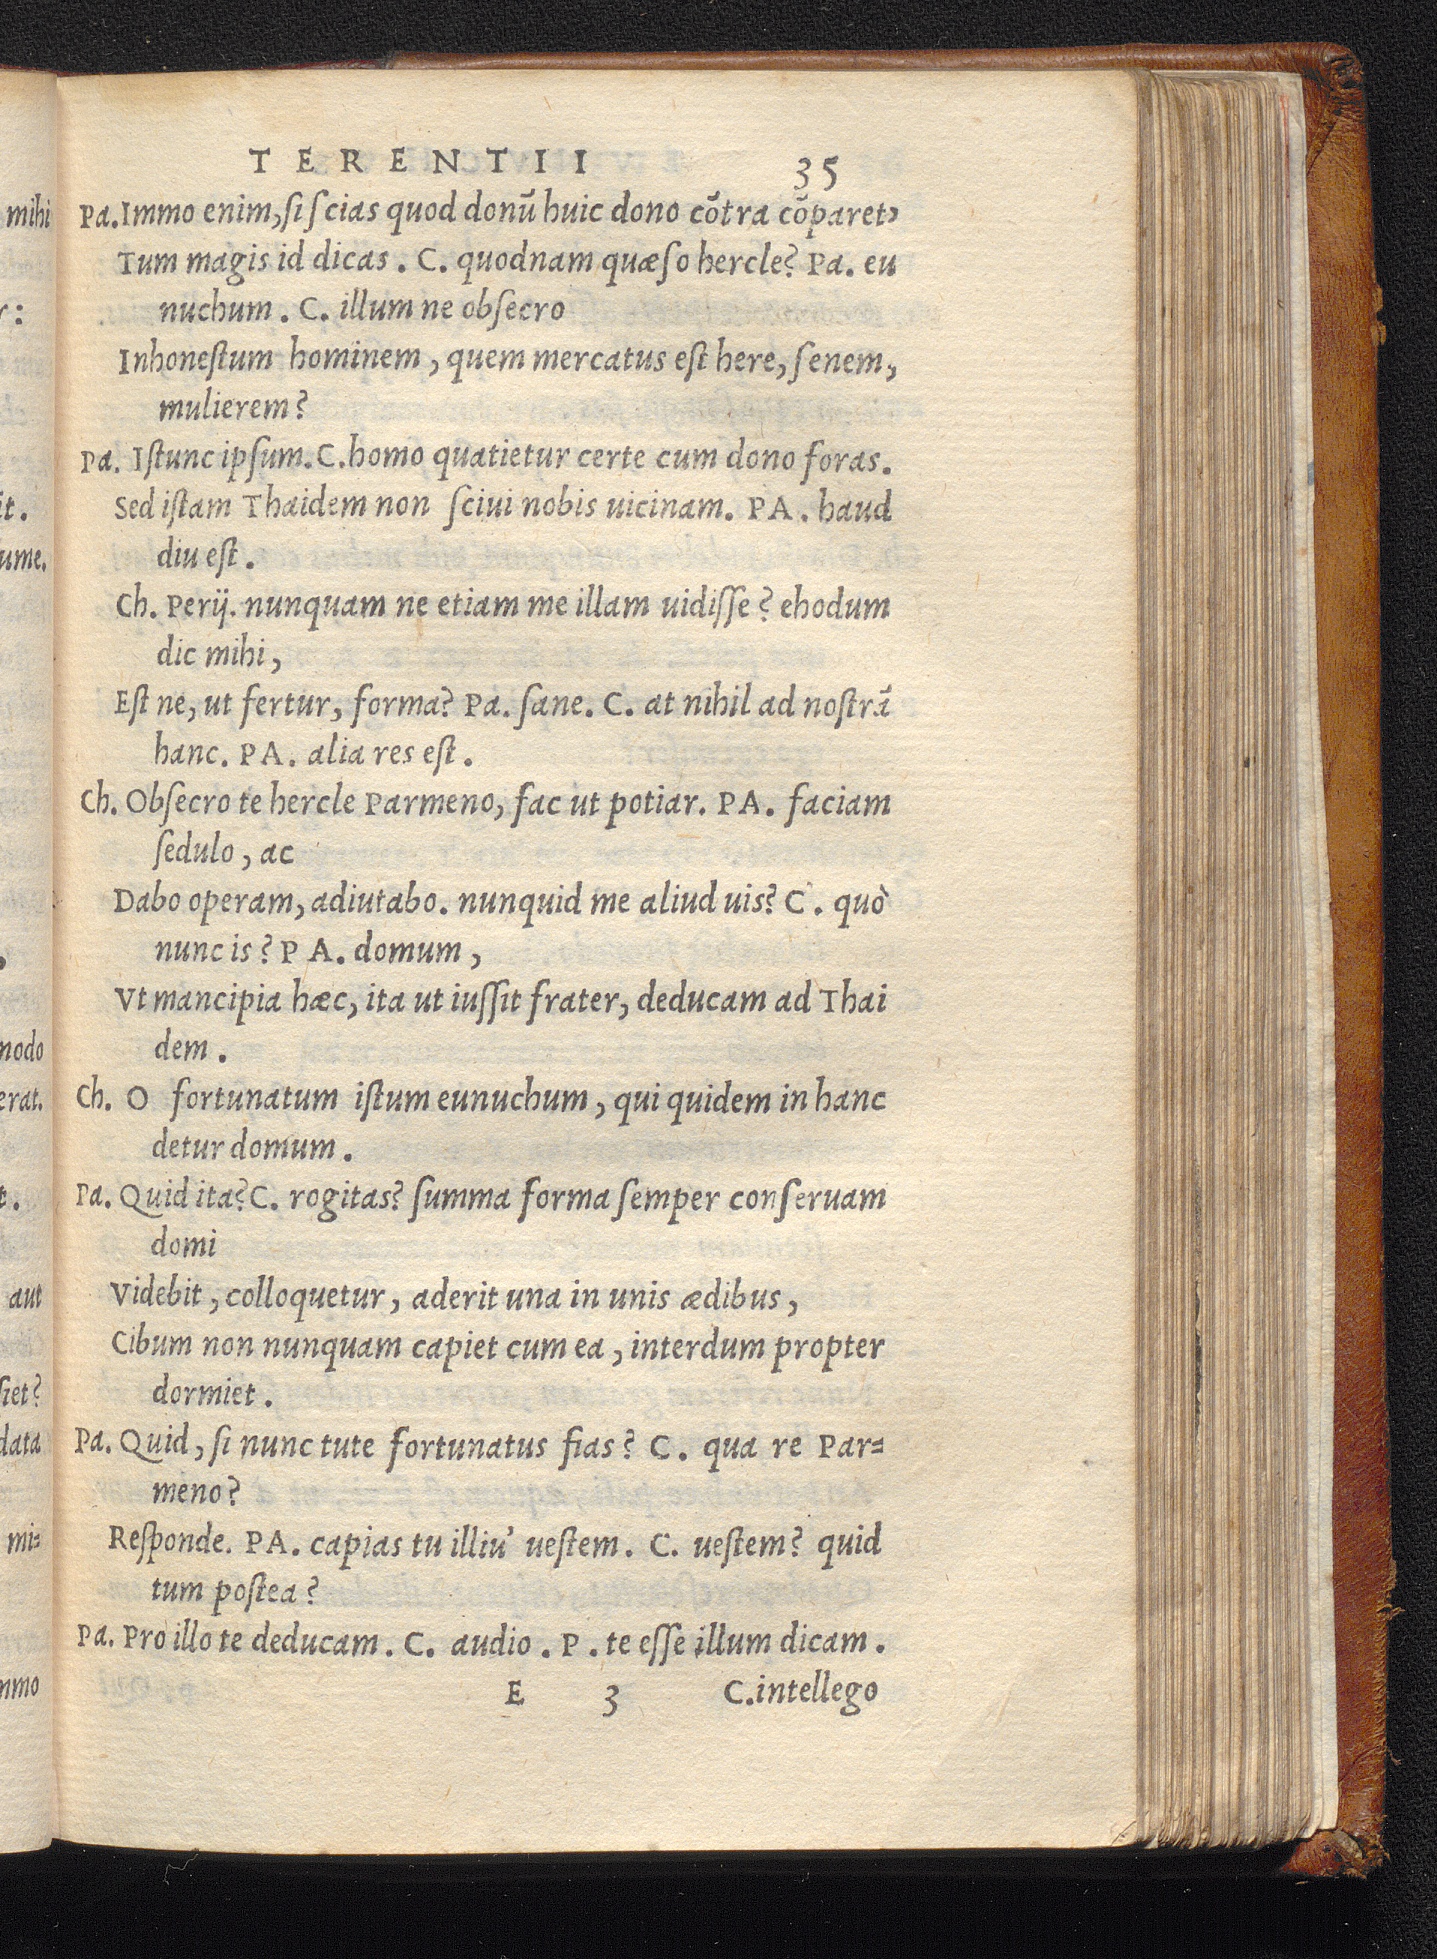 TERENTII 35
Pa. Immo enim, si scias quod donū huic dono cōtra cōparet,
Tum magis id dicas. C. quodnam quæso hercle? Pa. eu
nuchum. C. illum ne obsecro
Inhonestum hominem, quem mercatus est here, senem,
mulierem?
Pa. Istunc ipsum. C. homo quatietur certe cum dono foras.
Sed istam Thaidem non sciui nobis uicinam. PA. haud
diu est.
Ch. Perij. nunquam ne etiam me illam uidisse? ehodum
dic mihi,
Est ne, ut fertur, forma? Pa. sane. C. at nihil ad nostrā
hanc. PA. alia res est.
Ch. Obsecro te hercle Parmeno, fac ut potiar. PA. faciam
sedulo, ac
Dabo operam, adiutabo. nunquid me aliud uis? C. quò
nunc is? PA. domum,
Vt mancipia hæc, ita ut iussit frater, deducam ad Thai
dem.
Ch. O fortunatum istum eunuchum, qui quidem in hanc
detur domum.
Pa. Quid ita? C. rogitas? summa forma semper conseruam
domi
Videbit, colloquetur, aderit una in unis ædibus,
Cibum non nunquam capiet cum ea, interdum propter
dormiet.
Pa. Quid, si nunc tute fortunatus fias? C. qua re Par=
meno?
Responde. PA. capias tu illiu' uestem. C. uestem? quid
tum postea?
Pa. Pro illo te deducam. C. audio. P. te esse illum dicam.
E 3 C. intellego
mihi
r:
it.
ume.
modo
erat.
t.
aut
siet?
data
mi=
mmo